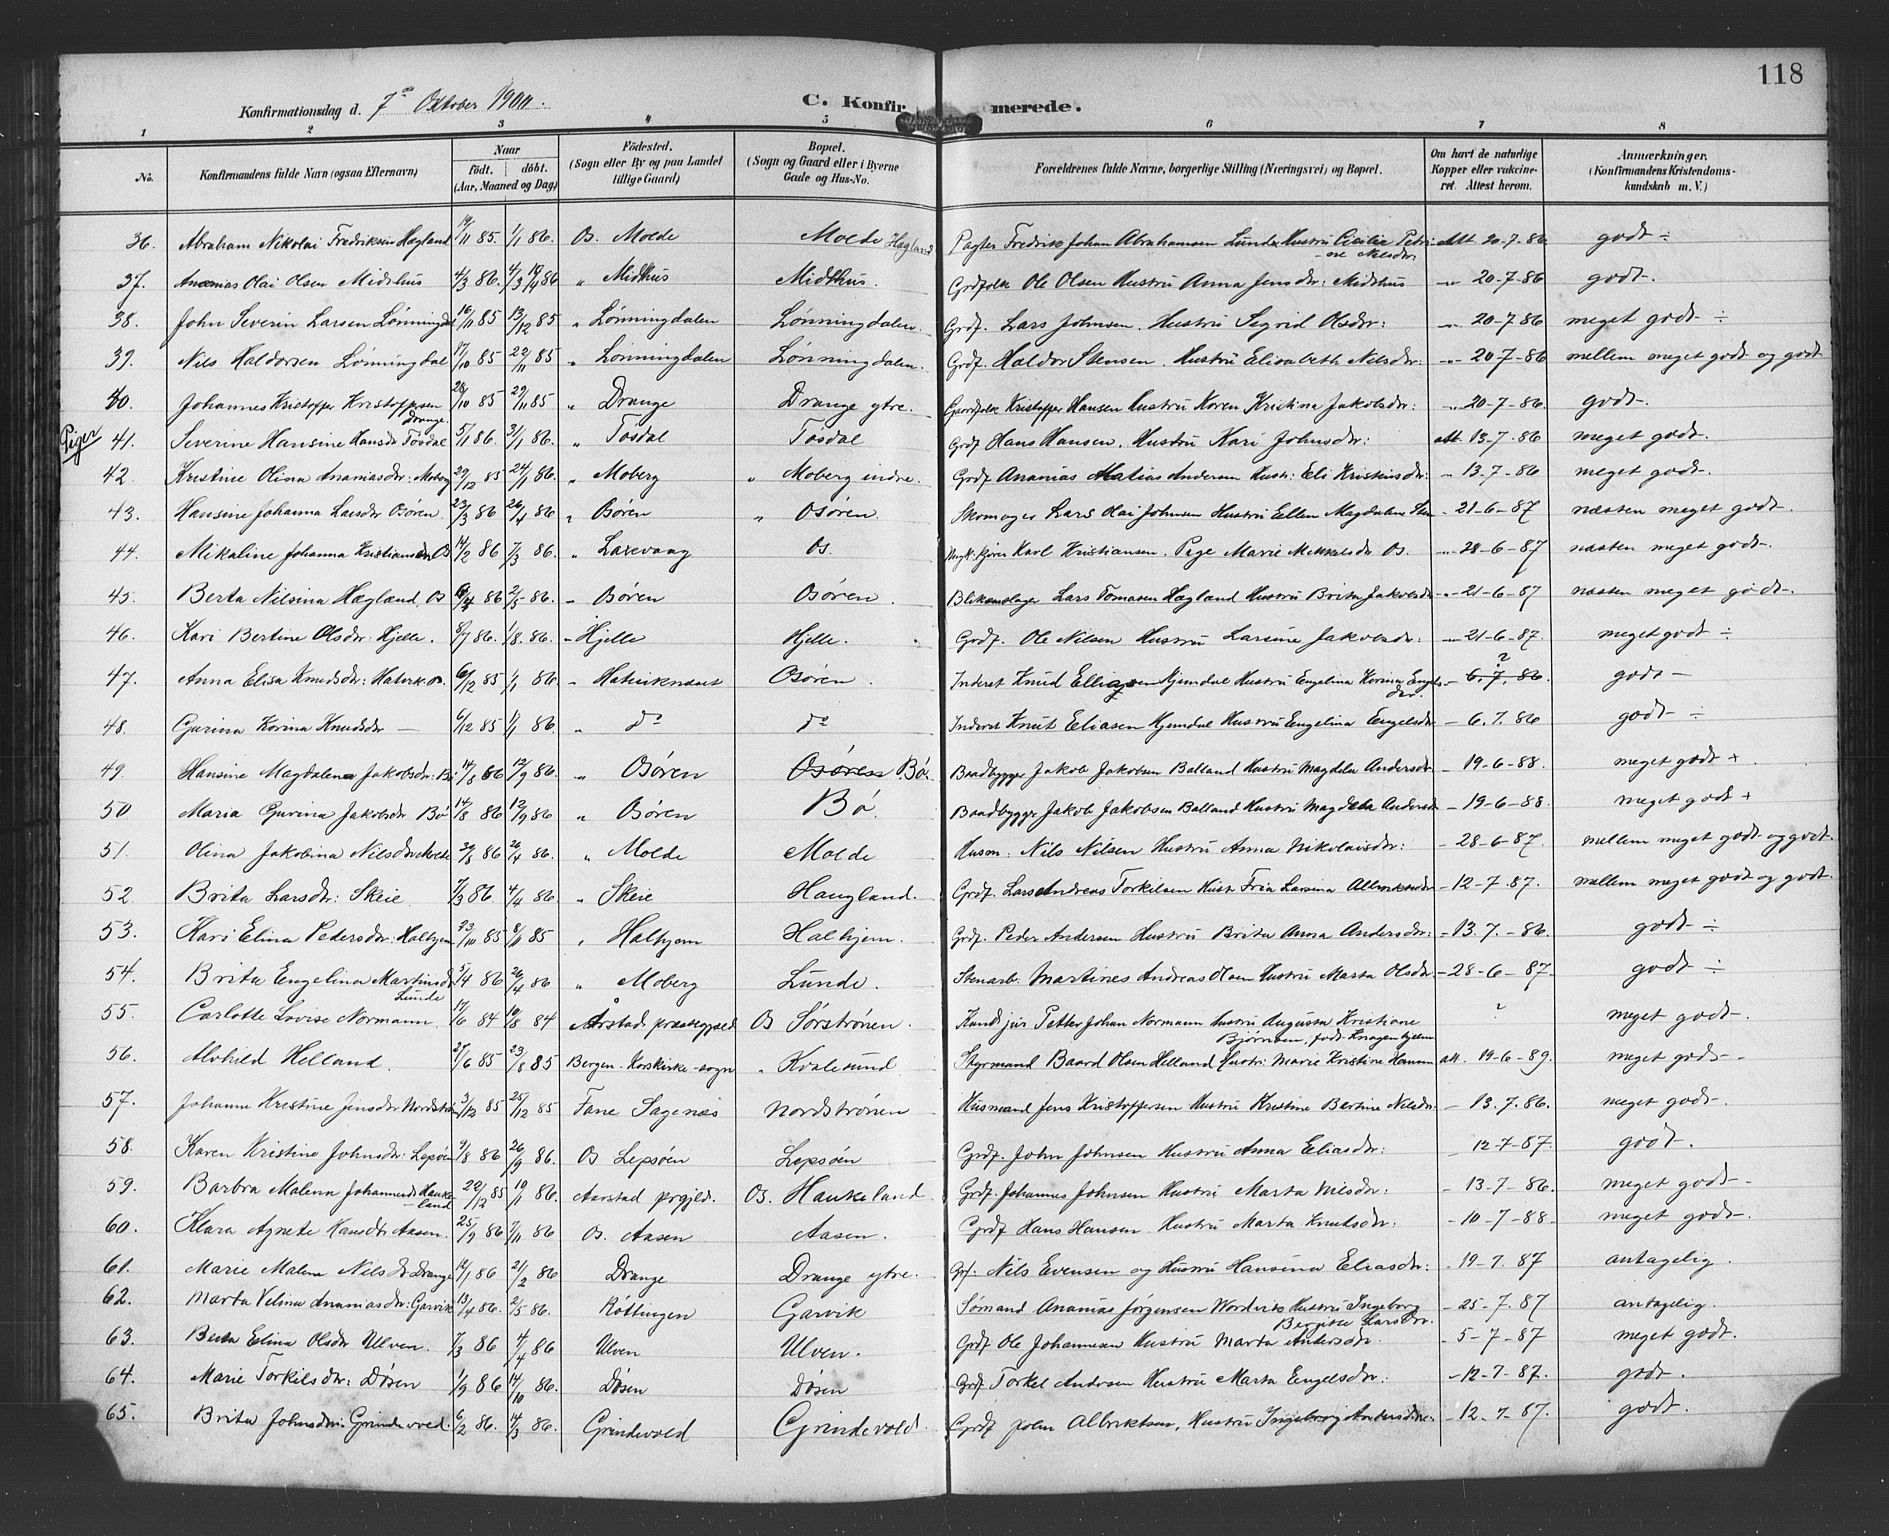 118
Konfirmationsdag d. 7de Oktober 1900. C. Konfirmerede.
1 2 3 4 5 6 7 8
No. Konfirmandens fulde Navn (ogsaa Efternavn) Naar født. døbt. (Aar, Maaned og Dag) Fødested. (Sogn eller By og paa Landet tillige Gaard) Bopæl. (Sogn og Gaard eller i Byerne Gade og Hus-No. Forældrenes fulde Navne, borgerlige Stilling (Næringsvei) og Bopæl. Om havt de naturlige Kopper eller vakcineret. Attest herom. Anmærkninger. (Konfirmandens Kristendomskundskab m. V.)
36. Abraham Nikolai Fredriksen Hægland 19/11 85. 1/1 86. Os. Molde Molde Hagland Pagter Fredrik Johan Abrahamsen Lunde Hustru Cicilie Petrine Nilsdr. Att. 20-7-86 godt ÷
37. Ananias Olai Olsen Midthus 4/3 86. 4/3 19/4 86 " Midthus Midthus. Grdfolk Ole Olsen Hustru Anna Jensdr: Midthus -"- 20-7-86 godt.
38. John Severin Larsen Lønningdal 16/11 85 13/12 85 " Lønningdalen Lønningdalen. Grdf. Lars Johnsen. Hustru Segrid Olsdr: -"- 20-7-86 meget godt ÷
39. Nils Haldorsen Lønningdal 17/10 85 22/11 85 " Lønningdalen Lønningdalen. Grdf. Haldor Stensen. Hustru Elisabeth Nilsdr: -"- 20-7-86 mellem meget godt og godt
40. Johannes Kristoffer Kristoffersen Drange 28/10 85 29/11 85 " Drange Drange ytre. Gaardfolk Kristoffer Hansen Hustru Karen Kristina Jakobsdr: -"- 20-7-86. godt.
Piger 41. Severine Hansine Hansdr Tøsdal 5/1 86. 31/1 86. " Tøsdal Tøsdal Grdf Hans Hansen. Hustru Kari Johnsdr: att. 13-7-86 meget godt.
42. Kristine Olina Ananiasdr: Moberg 29/12 85 24/1 86. " Moberg " Moberg indre. Grdf Ananias Matias Andersen Hustr: Eli Kristensdr: - 13-7-86 meget godt.
43. Hansine Johanna Larsdr Osøren 23/3 86 26/4 86 " Osøren " Osøren. Skomager Lars Olai Johnsen Hustru Ellen Magdalene - 21-6-87 næsten meget godt.
44. Mikaline Johanna Kristiansen Os 14/2 86 7/3 86. " Laxevaag Os. Karl Kristiansen. Pige Marie Mikkelsdr Os. -"- 28-6-87 næsten meget godt.
45. Berta Nilsina Hægland, Os 86 2/5 86. - Osøren Osøren. Blikkenslager Lars Tomasen Hægland Hustru Brita Jakobsdr -"- 21-6-87 næsten meget godt.
46. Kari Bertine Olsdr: Hjelle. 8/7 86. 1/8. 86. - Hjelle Hjelle. Grdf. Ole Nilsen Hustru Larsine Jakobsdr: -"- 21-6-87. meget godt ÷
47. Anna Elisa Knudsdr: Os. 6/12 85 1/1 86. - Hatviknæset Osøren. Inderst Knud Elliasen Gjemdal Hustru Engelina Korina Engelsdr. - 6.7.86 ? godt -
48. Gurina Korina Knudsdr — 6/12 85 1/1 86. " do do Inderst Knut Eliasen Hjemdal Hustru Engelina Engelsdr. - 6.7.86 godt ÷
49. Hansine Magdalena Jakobsdr: Bø 14/8 86 12/9 86. " Osøren Osøren Bø. Baadbygger Jakob Jakobsen Balland Hustru Magdela Andersdr. - 19-6-88. meget godt +.
50 Maria Gurina Jakobsdr Bø 14/8 86 12/9 86 " Osøren Bø. Baadbygger Jakob Jakobsen Balland Hustru Magdela Andersdr - 19-6-88. meget godt +
51. Olina Jakobina Nilsdr Molde 86 26/4 86. " Molde Molde Husm. Nils Nilsen Hustru Anna Nikolaisdr: - 28-6-87. mellem meget godt og godt.
52. Brita Larsdr: Skeie. 7/3 86. 4/4 86 " Skeie Haugland. Grdf. Lars Andreas Torkilsen Hust Fria Larsina Albrektsdr - 12-7-87. mellem meget godt og godt.
53. Kari Elina Pedersdr: Halhjem 23/10 85 8/11 85 " Halhjem Halhjem. Grdf. Peder Andersen Hustru Brita Anna Andersdr: - 13.7.-86. godt ÷
54. Brita Engelina Martinsdr Lunde 5/4 86 26/4 86 " Moberg Lunde. Stenarb. Martines Andreas Olsen Hustru Marta Olsdr - 28-6-87 godt ÷
55. Carlotte Lovise Normann. 17/6 84 10/8 84 Årstad præstegjæld Os Sørstrønen. Kand jur Petter Johan Normann hustru Augusta Kristiane Bjørnsen, født Knagenhjelm ? meget godt.
56. Alvhild Helland. 27/6 85 23/8 85 Bergen Korskirke-sogn " Kvalesund Styrmand Baard Olsen Helland Hustru Marie Kristine Hansen att. 19-6-89. meget godt -
57. Johanne Kristine Jensdr Nordstrønen 3/12 85 25/12 85 Fane Sagenæs Nordstrønen Husmand Jens Kristoffersen Hustru Kristine Bertine Nilsdr. - 13.7.86. meget godt.
58. Karen Kristine Johnsdr: Lepsøen 2/8 86 26/9 86. Os Lepsøen Lepsøen Grdf. John Johnsen Hustru Anna Eliasdr: 12-7-87. godt.
59. Barbra Malena Johannesdr Haukeland 22/12 85 10/1 86. Aarstad prgjld. Os. Haukeland Grdf. Johannes Johnsen Hustru Marta Nilsdr: - 13-7-86. meget godt -
60. Klara Agnete Hansdtr Aasen. 25/9 86 7/11 86. Os. Aasen Aasen. Grdf Hans Hansen. Hustru Marta Knutsdr: - 10-7-88- meget godt.
61. Marie Malena Nilsdr Drange 12/1 86 21/2 86 Drange Drange ytre. Grf. Nils Evensen og Hustru Hansina Eliasdr: - 19-7.87 antagelig.
62. Marta Velina Ananiasdr: Garvik 13/4 86. 2/5 86. Røttingen Garvik Sømand Ananias Jørgensen Nordvik Hustru Ingeborg Bergitte Larsdr. - 25-7.87 antagelig.
63. Berta Elina Olsdr Ulven. 7/3 86 4/4 86 Ulven Ulven. Grdf Ole Johannesen Hustru Marta Andersdr. - 5-7-87 meget godt.
64. Marie Torkilsdr: Døsen 1/9 86 17/10 86. Døsen Døsen Grdf Torkel Andersen Hustru Marta Engelsdr: - 12-7-87. godt.
65. Brita Johnsdr: Grindevold. 6/2 86. 14/3 86. Grindevold Grindevold. Grdf John Albriktsen, Hustru Ingeborg Andersdr: - 12-7-87. godt.